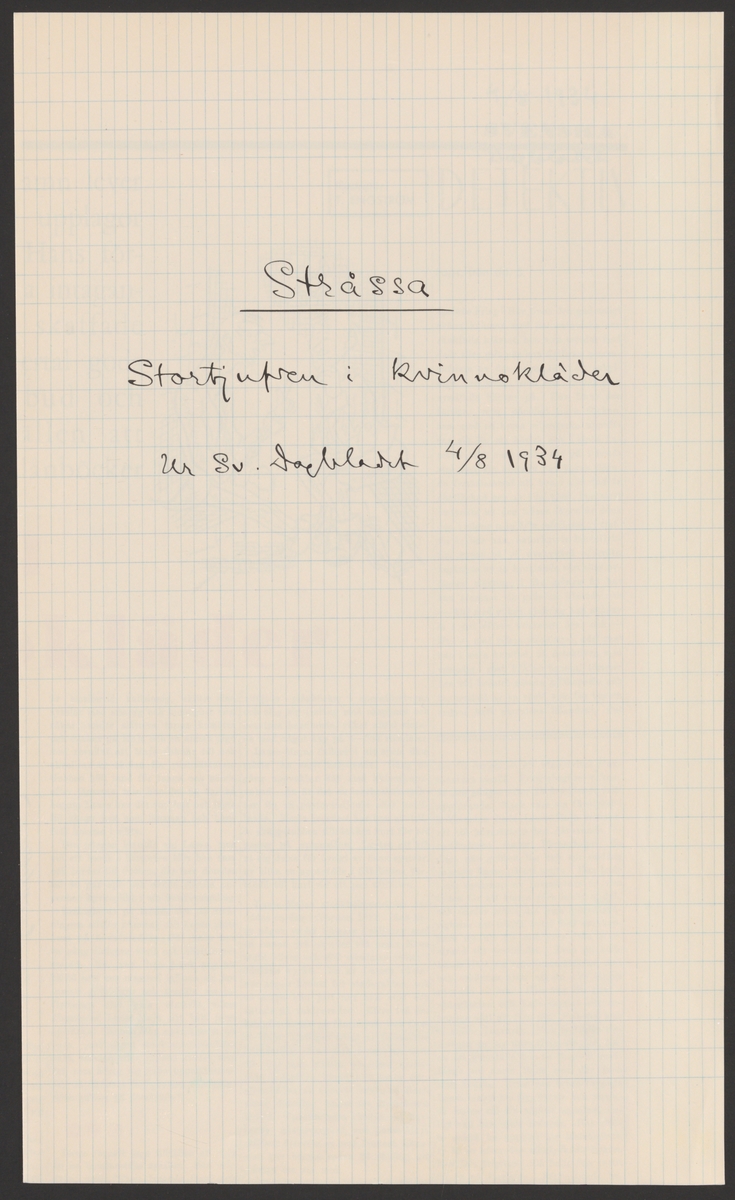 Stråssa
Stortjufven i kvinnokläder
Ur Sv. Dagbladet 4/8 1934